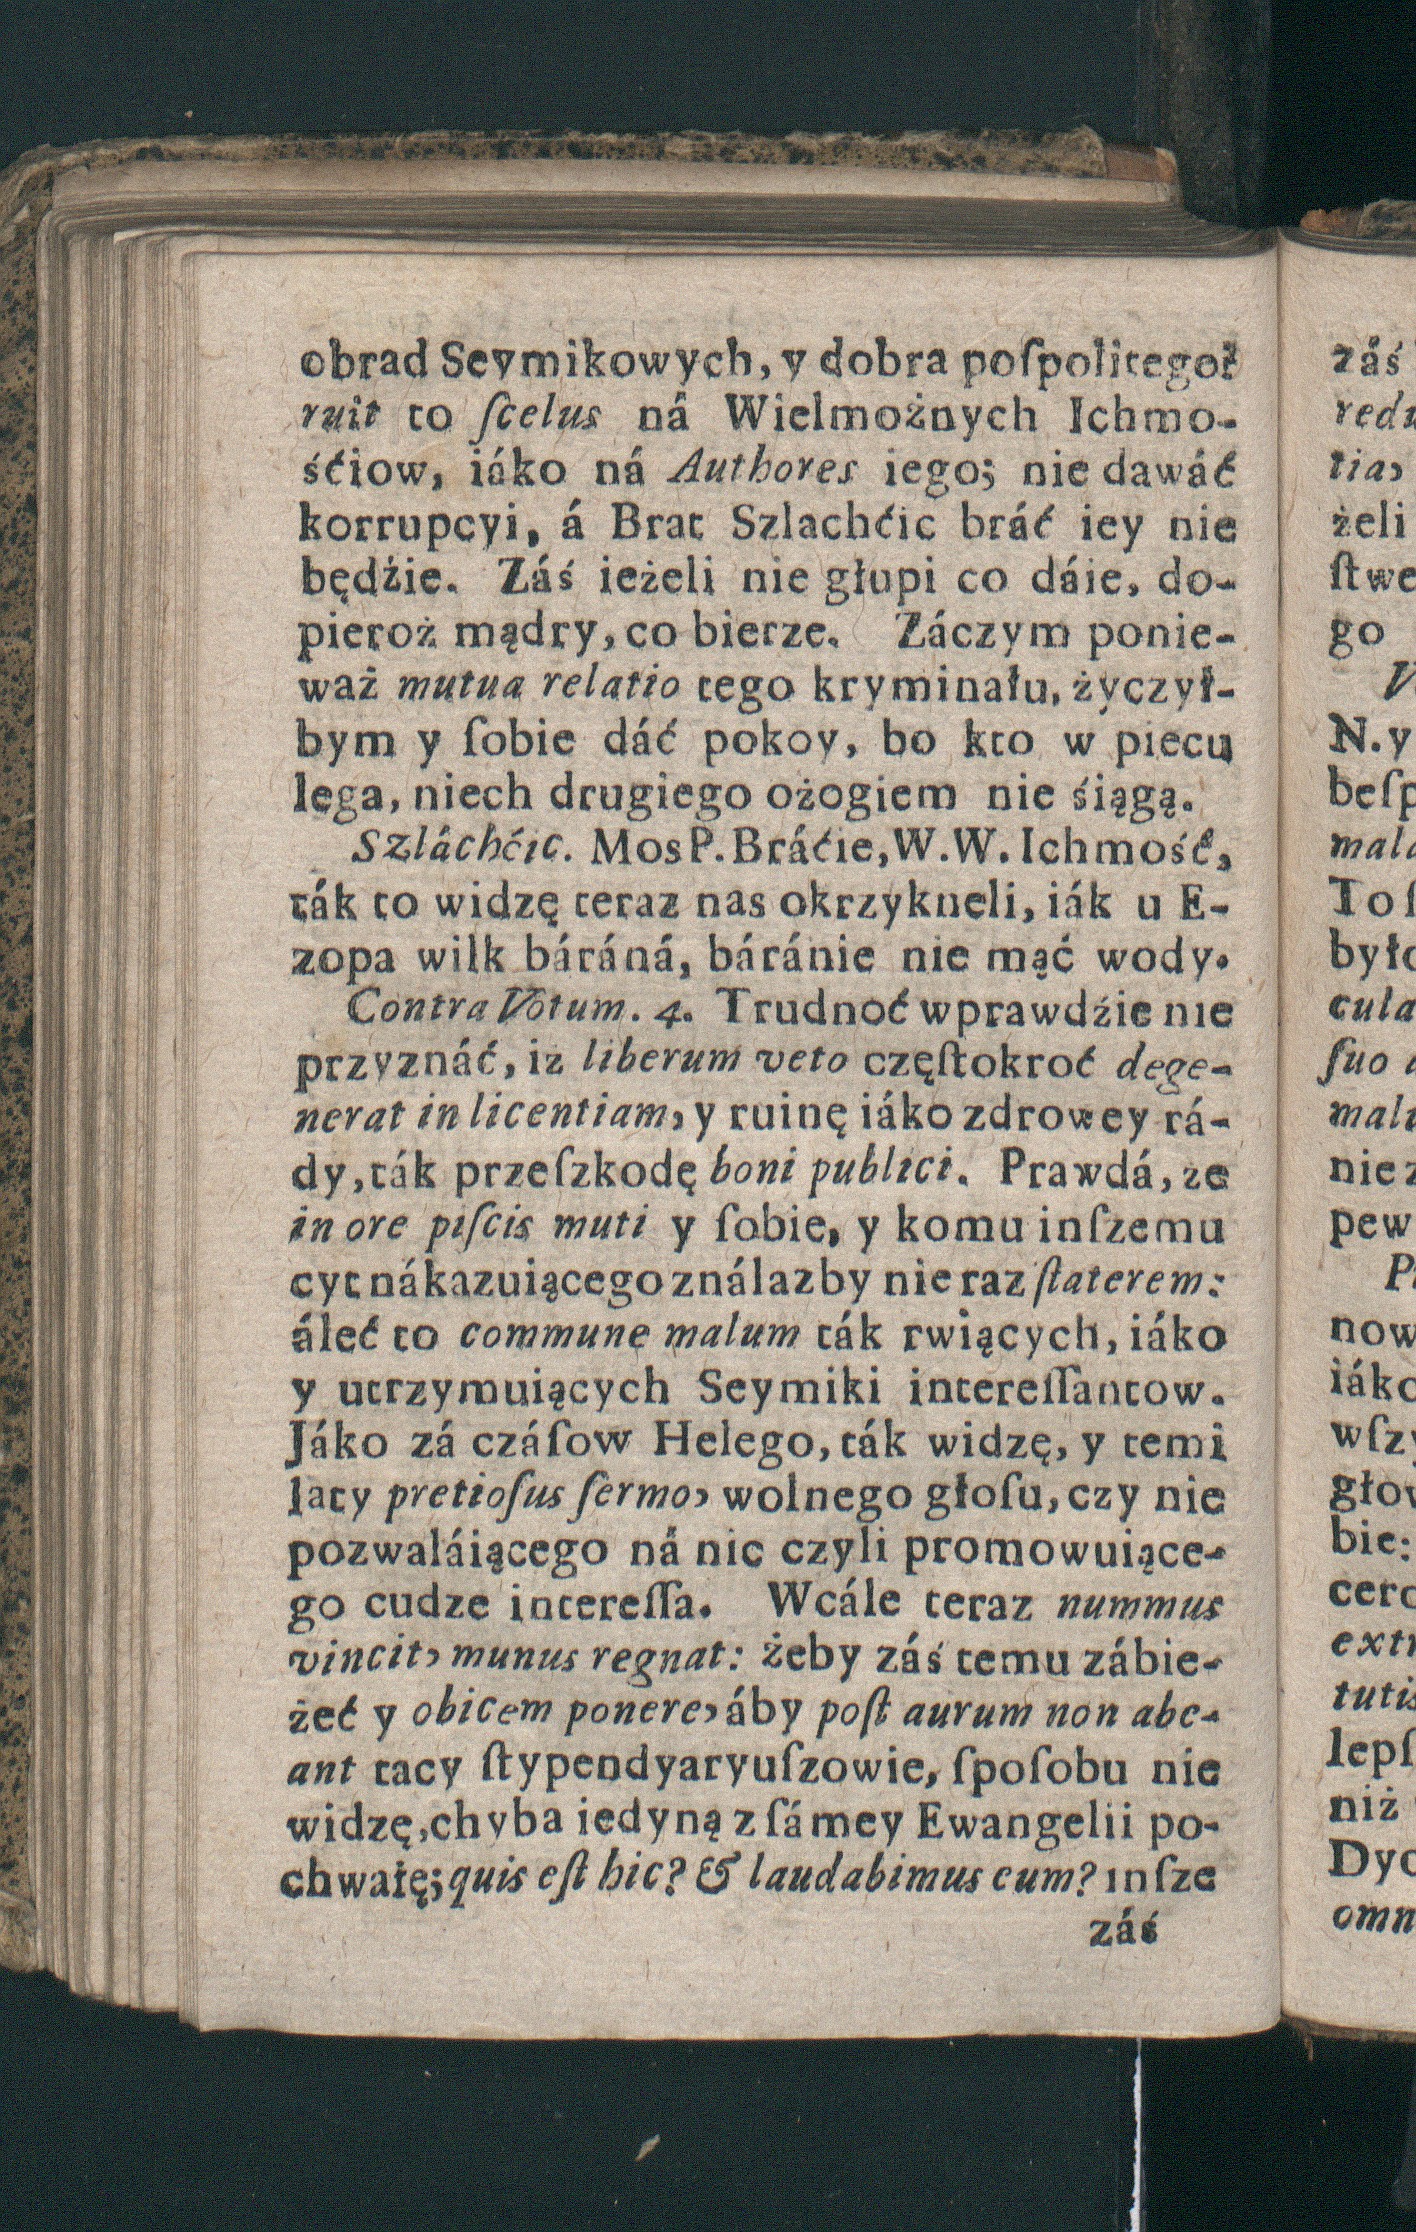 obrad Seymikowych, y dobra poſpolitego?
ruit to ſcelus ná Wielmożnych Ichmo-
śćiow, iáko ná Authores iego; nie dawáć
korrupcyi, á Brat Szlachćic bráć iey nie
będźie. Záś ieżeli nie głupi co dáie, do-
pieroż mądry, co bierze. Záczym ponie-
waż mutua relatio tego kryminału, życzył-
bym y ſobie dáć pokoy, bo kto w piecu
lega, niech drugiego ożogiem nie śiągą.
Szláchćic. Mos P. Bráćie, W.W. Ichmość,
ták to widzę teraz nas okrzykneli, iák u E-
zopa wilk báráná, báránie nie mąć wody.
Contra Votum. 4. Trudnoć wprawdźie nie
przyznáć, iz liberum veto częſtokroć dege-
nerat in licentiam, y ruinę iáko zdrowey rá-
dy, ták przeſzkodę boni publici. Prawdá, że
in ore piſcis muti y ſobie, y komu inſzemu
cyt nákazuiącegoználazby nie raz ſtaterem:
áleć to commune malum ták rwiących, iáko
y utrzymuiących Seymiki intereſſantow.
Jáko zá czáſow Helego, ták widzę, y temi
laty pretioſus ſermo, wolnego głoſu, czy nie
pozwaláiącego ná nic czyli promowuiące-
go cudze intereſſa. Wcále teraz nummus
vincit, munus regnat: żeby záś temu zábie-
żeć y obicem ponere, áby poſt aurum non abe-
ant tacy ſtypendyaryuſzowie, ſpoſobu nie
widzę, chyba iedyną z ſámey Ewangelii po-
chwałę; quis eſt hic? & laudabimus eum? inſze
záś